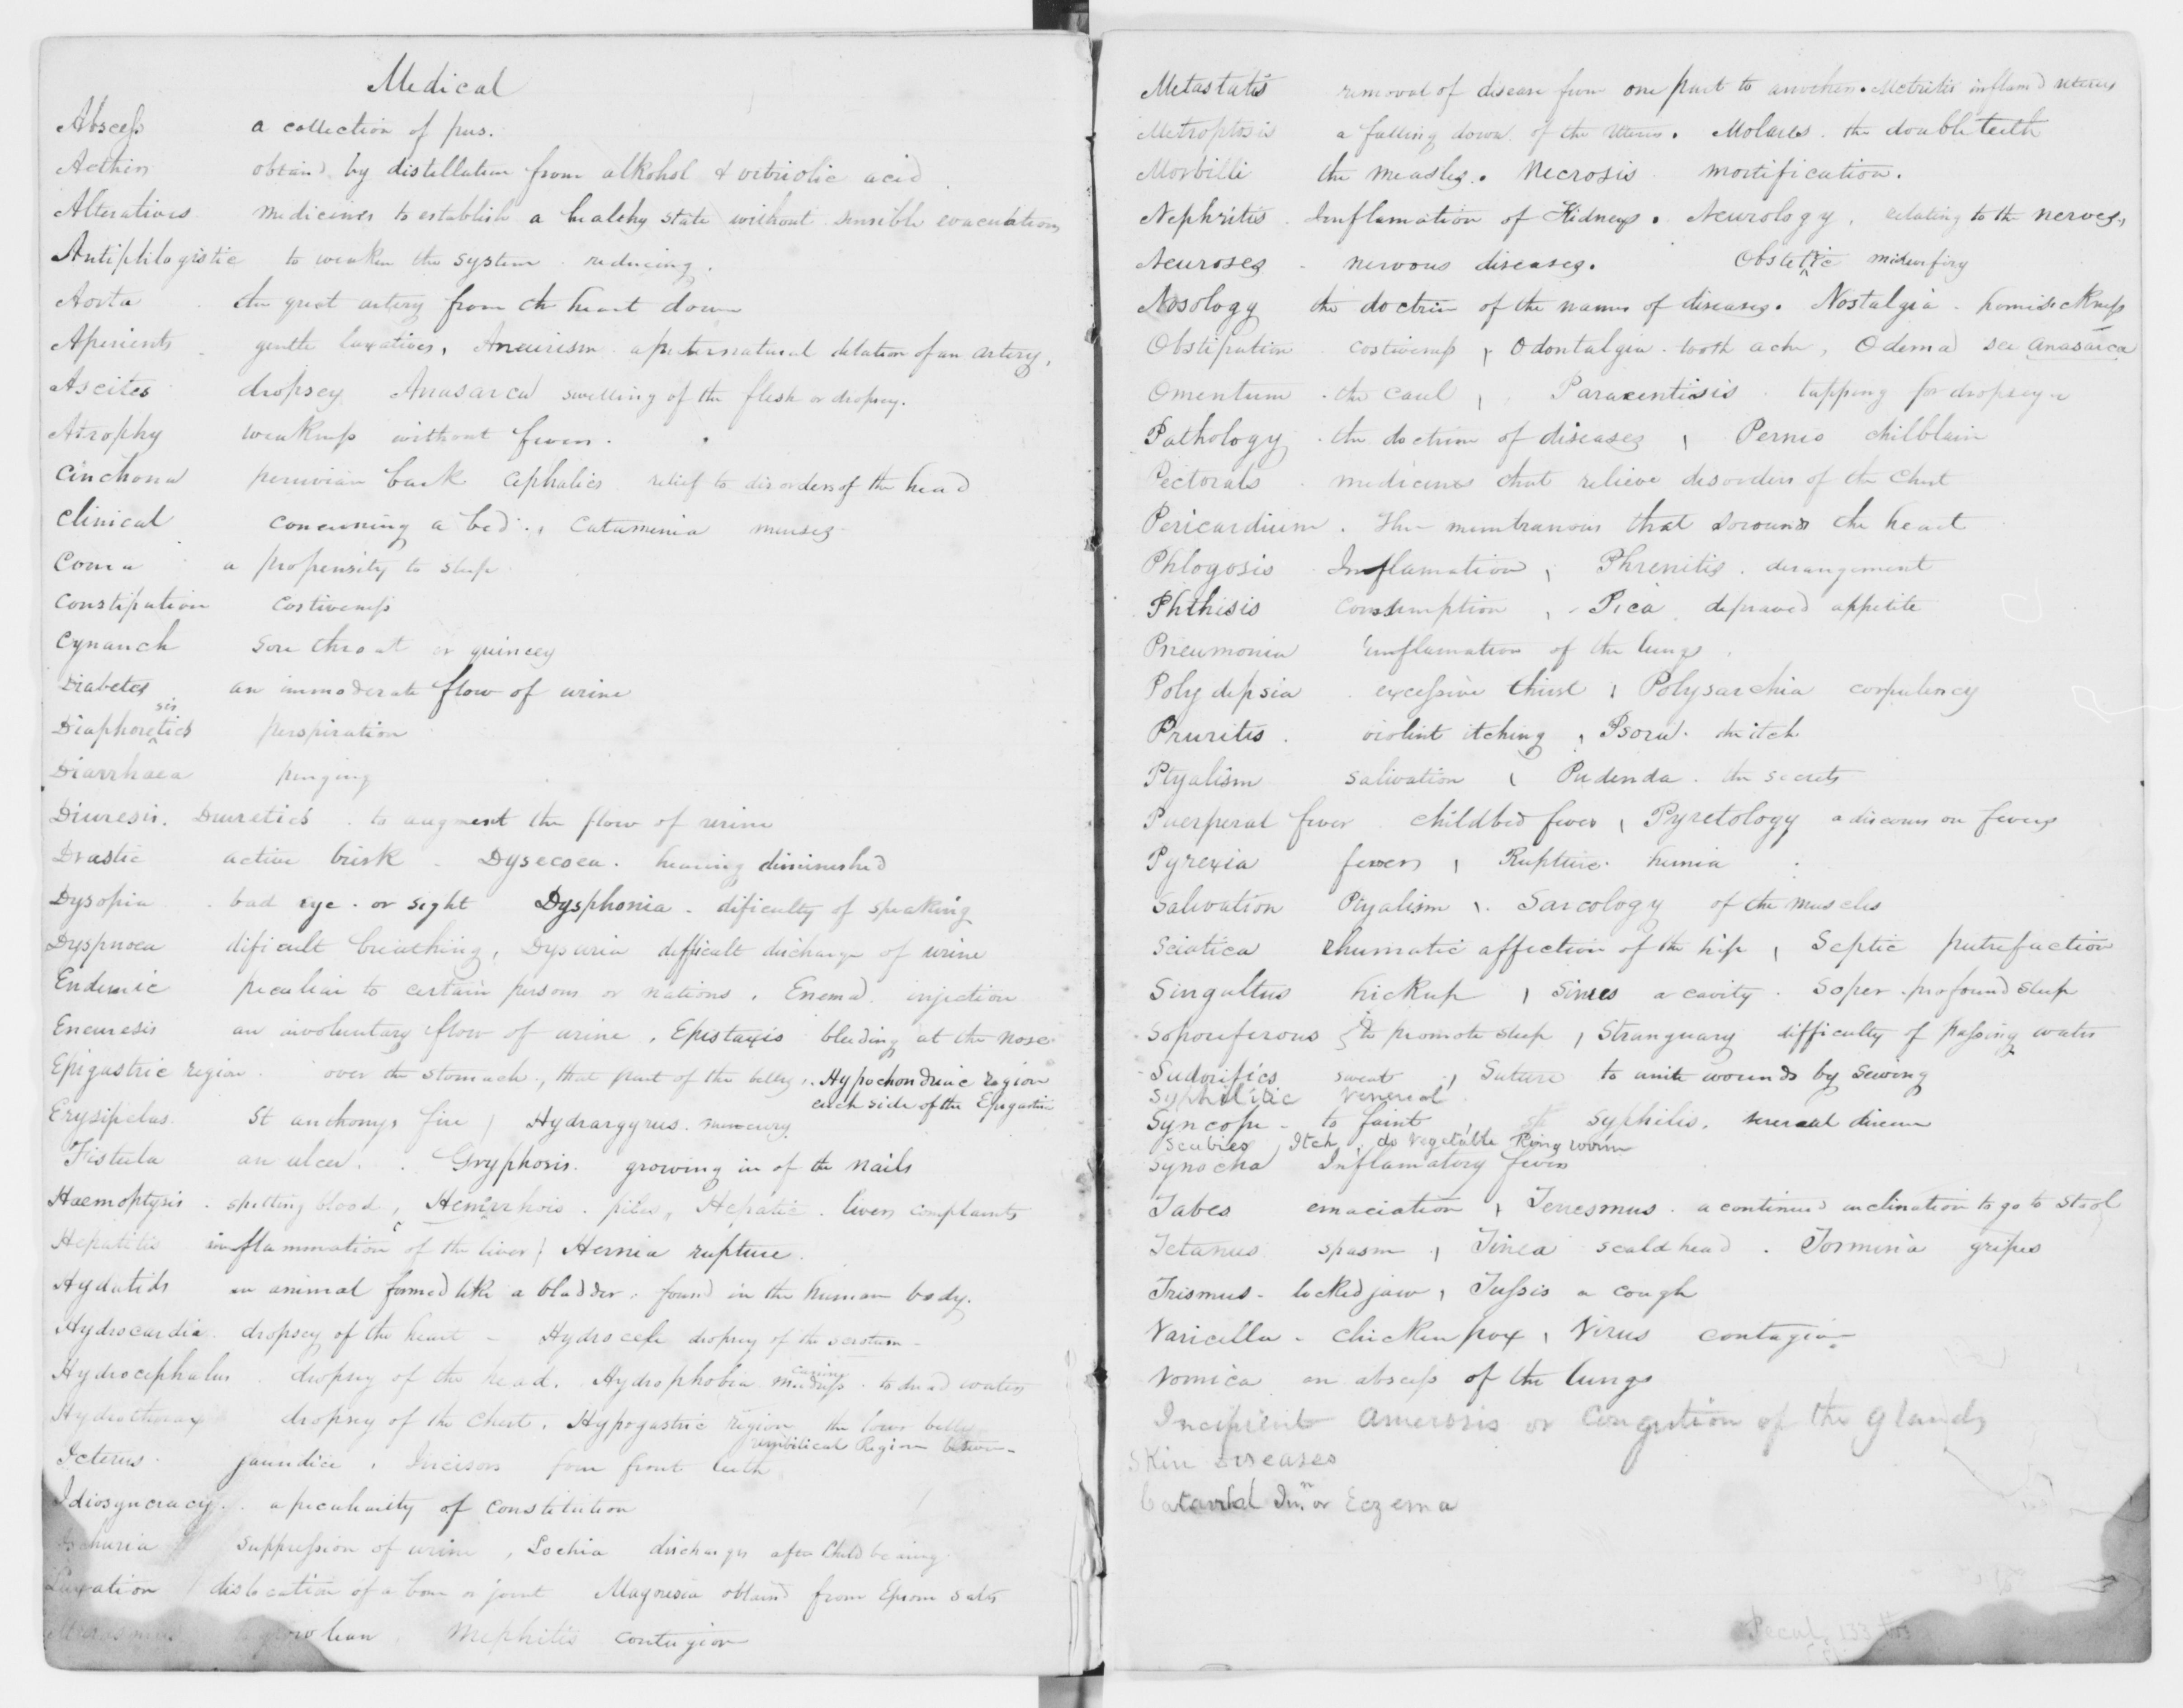 Medical
Abscess a collection of pus.
Aethier obtaind by distillation from alkohol & vitriolic acid
Alteratives medicines to establish a healthy state without sensible evacuations
Antiphlogistic to weaken the system reducing.
Aorta the great artery from the heart down
Aperients gentle laxatives, Aneurism a preternatural dilation of an artery,
Ascites dropsey Anasarca swelling of the flesh or dropsey.
Atrophy weakness without fever.
Cinchona peruvian bark Cephalics relief to disorders of the head
Clinical concerning a bed., Catamenia menses
Coma a propensity to sleep
Constipation Costiveness
Cynanch sore throat or quincey
Diabetes an immoderate flow of urine
sis
Diaphoretics perspiration
Diarrhaea purging
Diuresis. Diuretics. to augment the flow of urine
Drastic active brisk - Dysecoea. hearing diminished
Dysopia . bad eye. or sight Dysphonia. dificulty of speaking
Dyspnoea dificult breathing, Dysuria difficult discharge of urine
Endemic peculiar to certain persons or nations. Enema injection
Eneuresis an involuntary flow of urine. Epistaxis bleeding at the nose
Epigastric region. over the stomach., that part of the belly,. Hypochondriac region
each side of the Epigastric
Erysipelas St anthonys fire / Hydrargyrus. mercury
Fistula an ulcer. . Gryphosis. growing in of the nails
Haemoptysis . spitting blood, Hemerrhois. piles, Hepatic. liver complaints
Hepatitis inflammation of the liver / Hernia rupture.
Hydatids an animal formed like a bladder. found in the human body.
Hydrocardia. dropsey of the heart - Hydrocele dropsey of the scrotum -
Hydrocephalus . dropsey of the head. Hydrophobia canine madness. to dread water
Hydrothorax dropsey of the chest. Hypogastric region the lower belly
umbilical Region between
Icterus. jaundice, Incisors four front teeth
Idiosyncracy. . a peculiarity of constitution
Ischuria suppression of urine, Lochia discharges after Child bearing
Luxation dislocation of a bone or joint Magnesia obtaind from Epsom salts
grow lean. Mephitis contagion
Metastatis removal of disease from one part to another. Metritis inflamd uterus
Metroptosis a falling down of the uterus. Molares. the double teeth
Morbilli the measles. Necrosis mortification.
Nephritis. Inflamation of Kidneys. Neurology, relating to the nerves,
Neuroses - nervous diseases. Obstetric midwifery
Nosology the doctrin of the names of diseases. Nostalgia. homesickness
Obstipation costiveness, Odontalgia. tooth ache, Odema see anasarca
Omentum. the caul, Paracentisis. tapping for dropsey
Pathology. the doctrine of diseases, Pernio chilblain
Pectorals. medicines that relieve disorders of the Chest
Pericardium. The membranous that sorounds the heart
Phlogosis Inflamation, Phrenitis. derangement
Phthisis Consumption, Pica. depraved appetite
Pneumonia inflamation of the lungs.
Poly depsia excessive thirst, Polysarchia corpulency
Pruritis. violint itching, Psora. the itch
Ptyalism salivation, Pudenda. the secrets
Puerperal fever childbed fever, Pyretology a discours on fevers
Pyrexia fevers, Rupture. hernia
Salivation Ptyalism,. Sarcology of the muscles
Sciatica rhumatic affection of the hip, Septic putrefaction
Singultus hickup, Sinus a cavity. Soper. profound sleep
Soporiferous to promote sleep, Stranguary difficulty of passing water
Sudorifics sweat, Suture to unite wounds by sewing
Syphilitic Venereal
Syncope - to faint Syphilis. venereal disease
Scabies Itch, do vegetable Ring worm
Synocha Inflamatory fever
Tabes emaciation, Tenesmus. a continued inclination to go to stool
Tetanus spasm, Tinea scald head. Tormina gripes
Trismus - locked jaw, Tussis a cough
Varicella - chicken pox, Virus contagion
Vomica an abscess of the lungs
Incipient amerosis or Congestion of the glands
Skin diseases
Catarrhal Inn. or Eczema